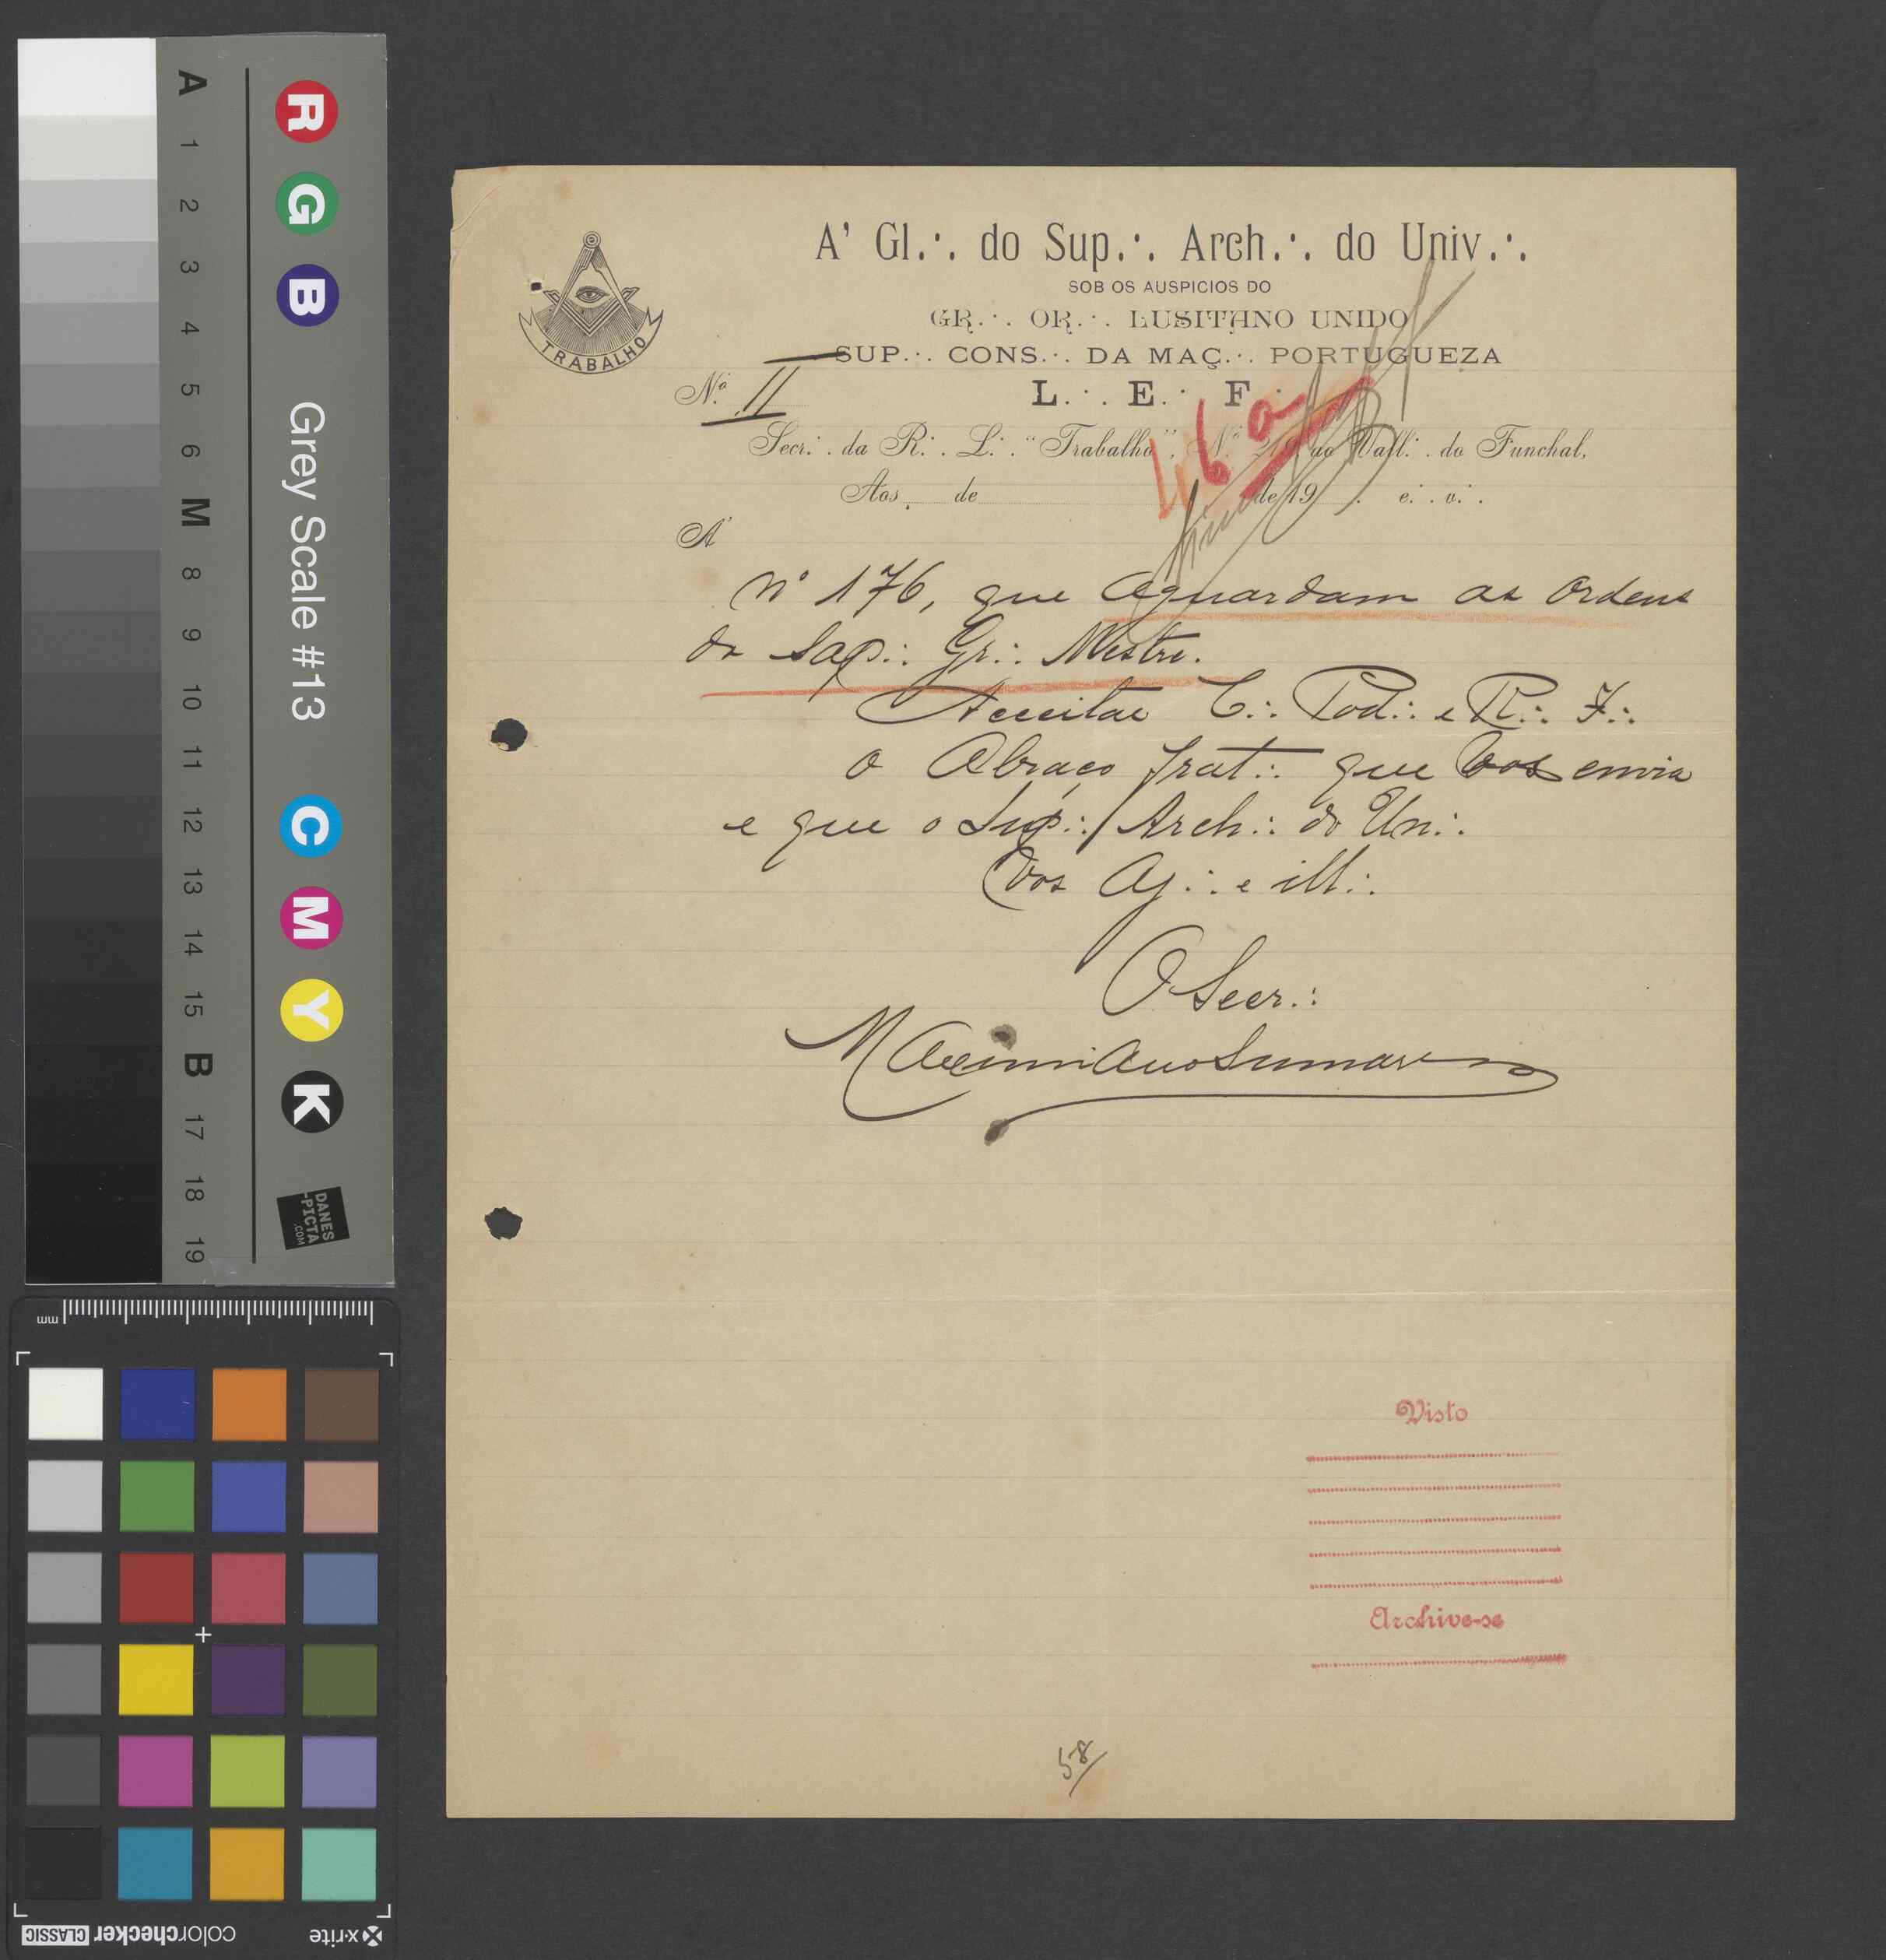 A' Gl.·. do Sup.·. Arch.·. do Univ.·.
SOB OS AUSPICIOS DO
GR.·. OR.·. LUSITANO UNIDO
SUP.·. CONS.·. DA MAÇ.·. PORTUGUEZA
TRABALHO
Nº 11
L.·. E.·. F.·.
Secr.·. da R.·. L.·. "Trabalho", Nº ao Vall.·. do Funchal,
Aos de de 19 . e.·. v.·.
46 a
A'
Nº 176, que aguardam as ordens
do Sap.·. Gr.·. Mestre.
Acceitae C.·. Pod.·. e R.·. I.·.
o Abraço frat.·. que vos envia
e que o Sup.·. Arch.·. do Un.·.
vos Aj.·. e ill.·.
O Secr.·.
Maximiano
Visto
Archive-se
58
A
1
2
3
4
5
6
M
8
9
10
11
12
13
14
15
B
17
18
19
R G B
Grey Scale #13
C M Y K
DANES
-PICTA
.COM
mm
x-rite
colorchecker CLASSIC